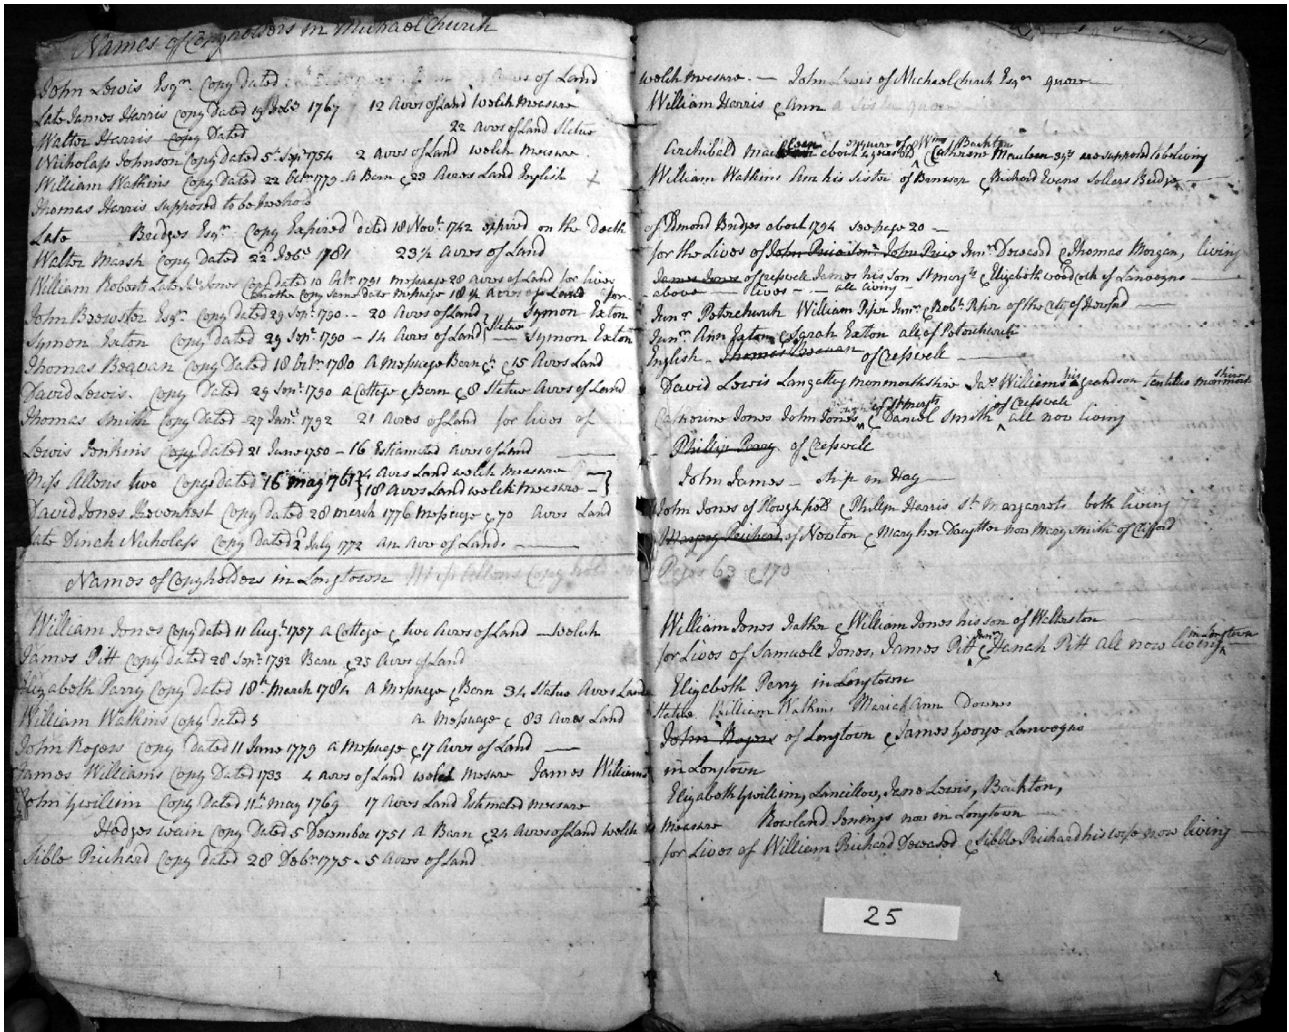 Names of Copyholders in Michael Church
John Lewis Esqr. Copy Dated Acres of Land
Late James Harris Copy Dated 19 Febr 1767 12 Acres of Land Welch Measure
Walter Harris Copy Dated 22 Acres of Land Statue
Nicholass Johnson Copy dated 5t. Sepr 1754 2 Acres of Land welch Measure
William Watkins Copy Dated 22 Octbr 1779 A Barn & 23 Acres Land English
Thomas Harris supposed to be freehold
Late Bridges Esqr. Copy Expired dated 18 Novr. 1742 expired on the Death
Walter Marsh Copy Dated 22d Febr. 1781 23½ Acres of Land
William Robert Late Jas Jones Copy dated 10 Octbr 1791 Messuage 28 Acres of Land for lives
Another Copy same date Messuage 18½ Acres of Land for
John Brewster Esqr. Copy dated 29 Sepr. 1790 - 20 Acres of Land Symon Exton
Symon Exton Copy dated 29 Sepr. 1790 - 14 Acres of Land } Statue - Symon Exton
Thomas Beavan Copy Dated 18 Octbr. 1780 A Messuage Barn & 15 Acres Land
David Lewis. Copy Dated 29 Sepr. 1790 a Cottage & Barn & 8 Statue Acres of Land
Thomas Smith Copy Dated 27 Janr. 1792 21 Acres of Land for lives of
Lewis Jenkins Copy dated 21 June 1750 - 16 Estimated Acres of Land
Miss Allens two Copys dated 16 May 1761 { 4 Acres Land welch Measure
18 Acres Land welch Measure }
David Jones Copy dated 28 March 1776 Messuage & 70 Acres Land
Late Dinah Nicholass Copy Dated 2d July 1772 an Acre of Land
Names of Copyholders in Longtown Miss Allens Copy hold
William Jones Copy dated 11 Augt. 1757 a Cottage & two Acres of Land - Welch
James Pitt Copy dated 28 Sepr. 1792 Barn & 25 Acres of Land
Elizabeth Parry Copy Dated 18th March 1784 A Messuage & Barn 34 Statue Acres Land
William Watkins Copy dated 3 a Messuage & 83 Acres Land
John Rogers Copy Dated 11 June 1779 a Messuage & 17 Acres of Land
James Williams Copy Dated 1733 4 acres of Land welch Mesure James Williams
John Gwillim Copy Dated 11th May 1769 17 Acres Land Estimated Measure
Hodges Wain Copy Dated 5 December 1751 A Barn & 24 Acres of Land Welch
Sible Prichard Copy dated 28 Febr. 1775 - 5 Acres of Land
welch Measure. - John Lewis of Michael Church Esqr quere
William Harris & Ann a Sister quere
Esquire of Wm Backton
Archibald about 4 years old & Catherine 34s are supposed to be living
William Watkins Ann his sister of Bromsop & Richard Evans Sollers Bridge
of Edmond Bridges about 1794 see page 20 -
for the Lives of John Price Junr. Deceasd & Thomas Morgan, living
James Jones of Cresswell James his Son St Margts. & Elizabeth
above - lives - - all living -
Junr. Peterchurch William Junr. & Robt. of the City of Hereford
Junr. Ann Exton & Sarah Exton all of Peterchurch
English - Thomas Beavan of Cresswell
David Lewis Langattog Monmouthshire Jas. Williams his grandson Monmouth shire
of St Margts of Cresswell
Catherine Jones John Jones & Daniel Smith all now living
Phillip Parry of Cresswell
John James - in Hay
John Jones of Plough field & Phillip Harris St Margarets both living 72
Prichard of Newton & Mary her Daughter now Mary Smith of Clifford
Pages 63 & 170
William Jones Father & William Jones his son of Walterston
for Lives of Samuell Jones, James Pitt Junr & Hanah Pitt all now living in Longtown
Elizabeth Parry in Longtown
Statue William Watkins Ann Downes
John Rogers of Longtown & James George
in Longtown
Elizabeth Gwillim, Lancillow, Jane Lewis, Backton,
Measure Rowland Jenings now in Longtown
for Lives of William Prichard Deceased & Sible Prichard his wife now living
25